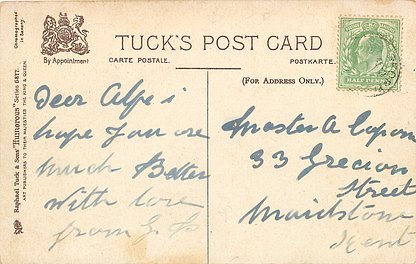 By Appointment
TUCK'S POST CARD
CARTE POSTALE. POSTKARTE.
(FOR ADDRESS ONLY.)
Chromographed in Saxony.
Raphael Tuck & Sons' "Humorous" Series 6817.
ART PUBLISHERS TO THEIR MAJESTIES THE KING & QUEEN.
HALF PENNY
Dear Alfe i
hope you are
much Better
With love
from G
Master A Capon
33 Grecian
Street
Maidstone
Kent